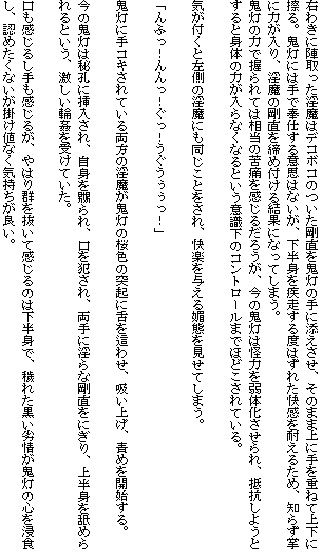 右わきに陣取った淫魔はデコボコのついた剛直を鬼灯の手に添えさせ、そのまま上に手を重ねて上下に
擦る。鬼灯には手で奉仕する意思はないが、下半身を疾走する度はずれた快感を耐えるため、知らず掌
に力が入り、淫魔の剛直を締め付ける結果になってしまう。
鬼灯の力で握られては相当の苦痛を感じるだろうが、今の鬼灯は怪力を弱体化させられ、抵抗しようと
すると身体の力が入らなくなるという意識下のコントロールまでほどこされている。
気が付くと左側の淫魔にも同じことをされ、快楽を与える媚態を見せてしまう。
「んふっ…んんっ…ぐっ…うぐうぅぅっ…」
鬼灯に手コキされている両方の淫魔が鬼灯の桜色の突起に舌を這わせ、吸い上げ、責めを開始する。
今の鬼灯は秘孔に挿入され、自身を嬲られ、口を犯され、両手に淫らな剛直をにぎり、上半身を舐めら
れるという、激しい輪姦を受けていた。
口も感じるし手も感じるが、やはり群を抜いて感じるのは下半身で、穢れた黒い劣情が鬼灯の心を浸食
し、認めたくないが掛け値なく気持ちが良い。